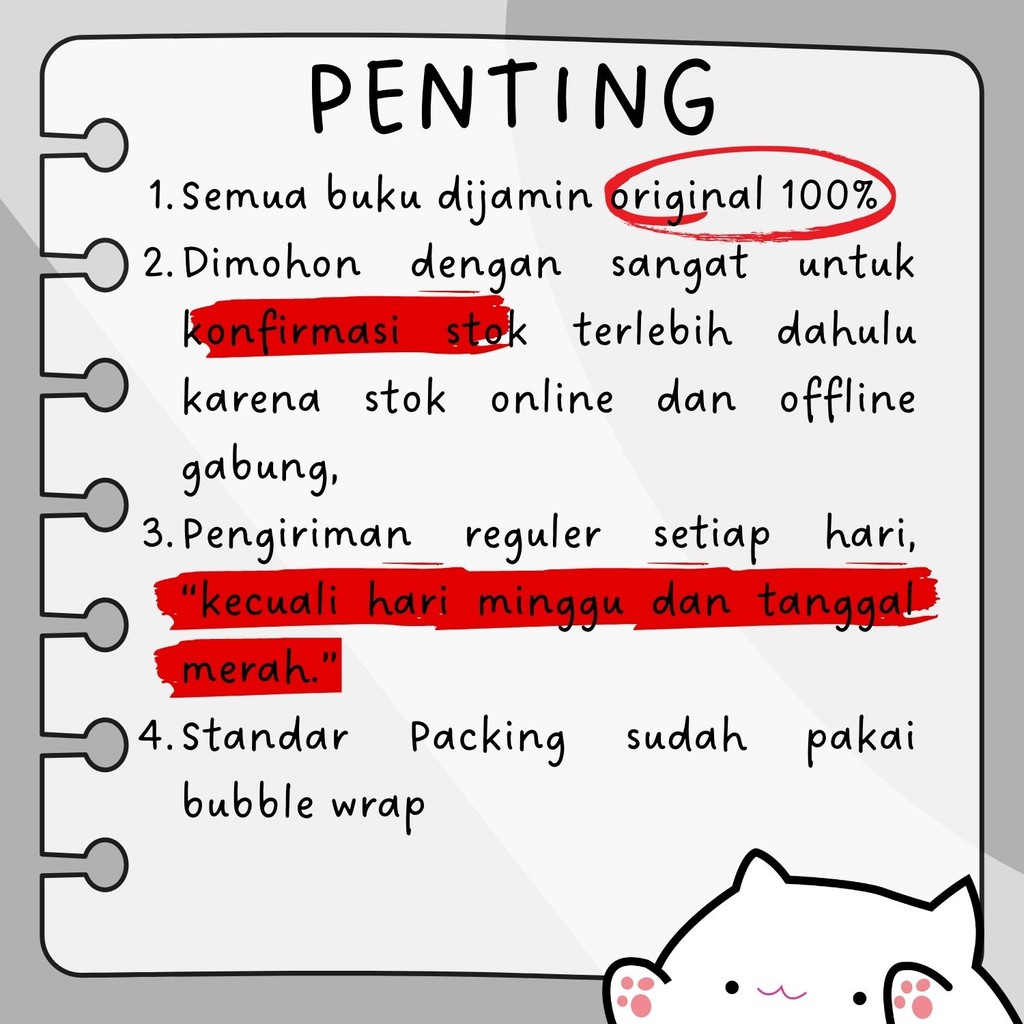 PENTING
1. Semua buku dijamin original 100%
2. Dimohon dengan sangat untuk
konfirmasi stok terlebih dahulu
karena stok online dan offline
gabung,
3. Pengiriman reguler setiap hari,
“kecuali hari minggu dan tanggal
merah.”
4. Standar Packing sudah pakai
bubble wrap